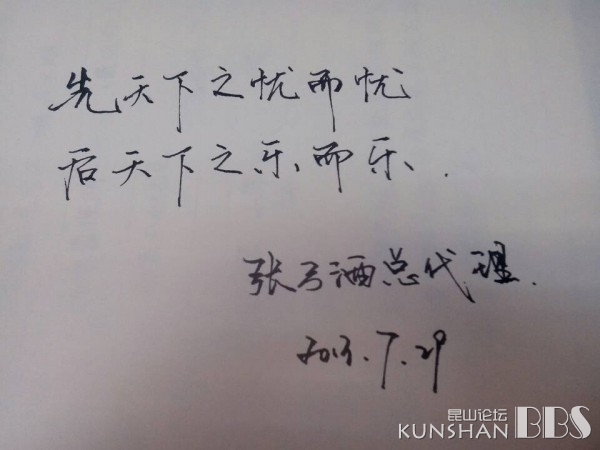 先天下之忧而忧
后天下之乐而乐.
张弓酒总代理.
2013.7.29
昆山论坛
KUNSHAN BBS